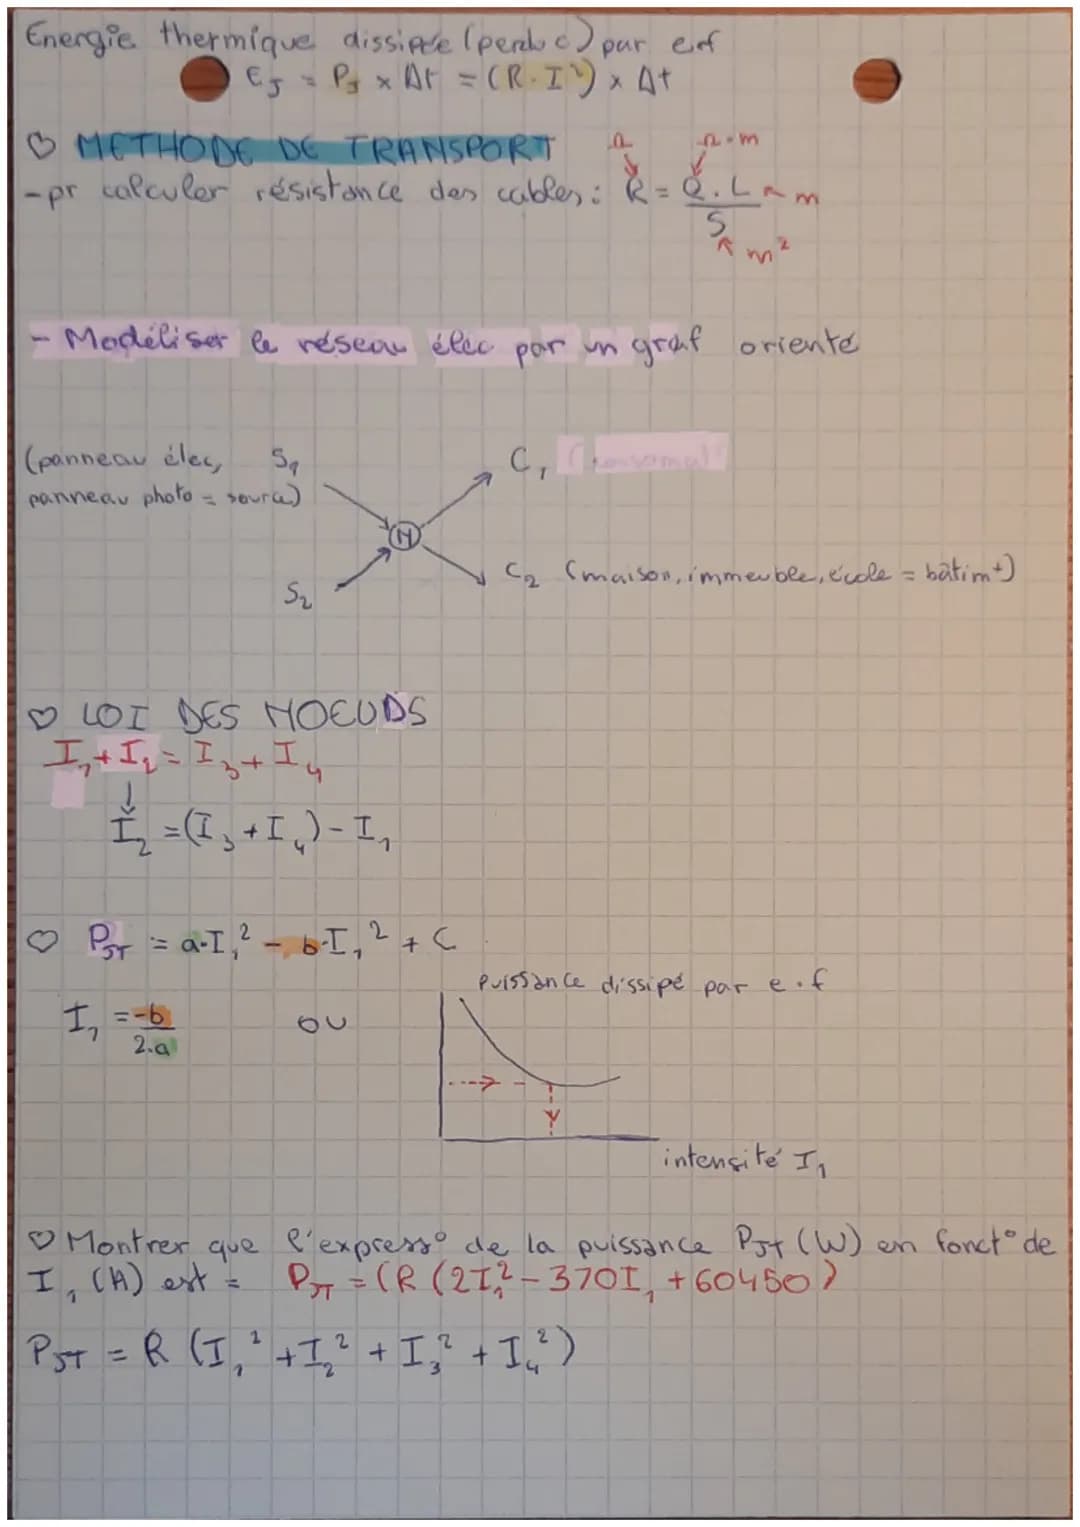 Energie thermique dissipée (perdue) par e.f
EJ = PJ x Δt = (R.I²) x Δt
♡ METHODE DE TRANSPORT
Ω Ω.m
- pr calculer résistance des cables : R = ρ.L / S
m
m²
- Modéliser le réseau élec par un graf orienté
(panneau élec, S₁
panneau photo = source)
C₁
N
S₂
C₂ (maison, immeuble, école = bâtim⁺)
♡ LOI DES NOEUDS
I₁ + I₂ = I₃ + I₄
I₂ = (I₃ + I₄) - I₁
♡ PJT = a.I₁² - b.I₁² + C
Puissance dissipé par e.f
I₁ = -b / 2.a ou
intensité I₁
♡ Montrer que l'express° de la puissance PJT (W) en fonct° de
I₁ (A) est = PJT = (R (2I₁² - 370I₁ + 60450)
PJT = R (I₁² + I₂² + I₃² + I₄²)